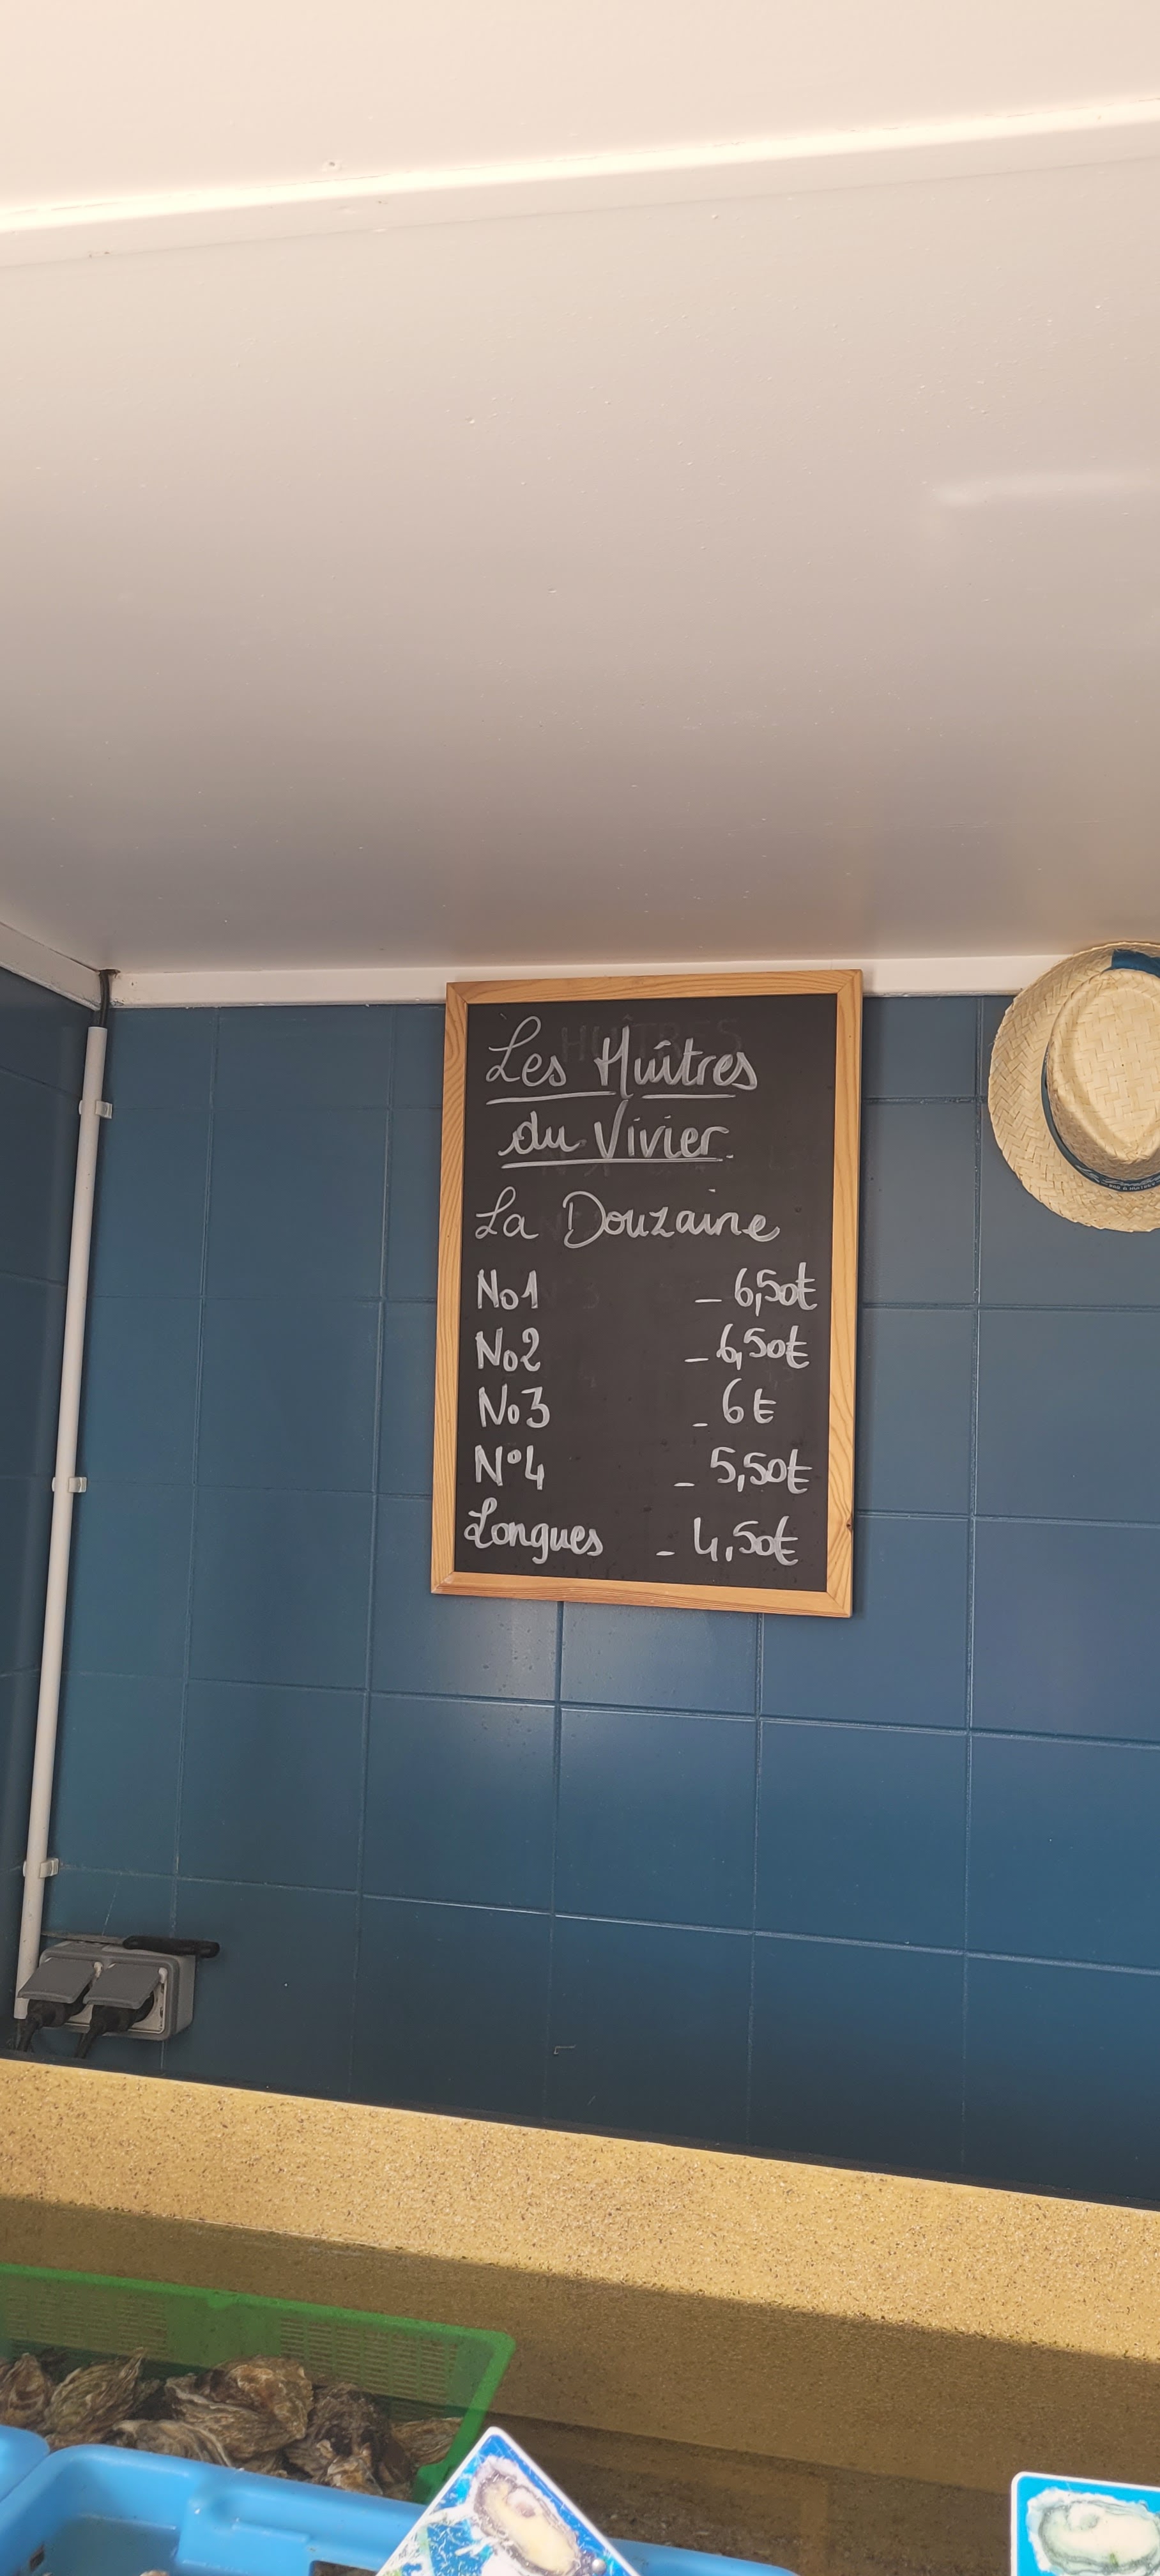 Les Huîtres
du Vivier.
La Douzaine
No1 - 6,50€
No2 - 6,50€
No3 - 6€
N°4 - 5,50€
Longues - 4,50€